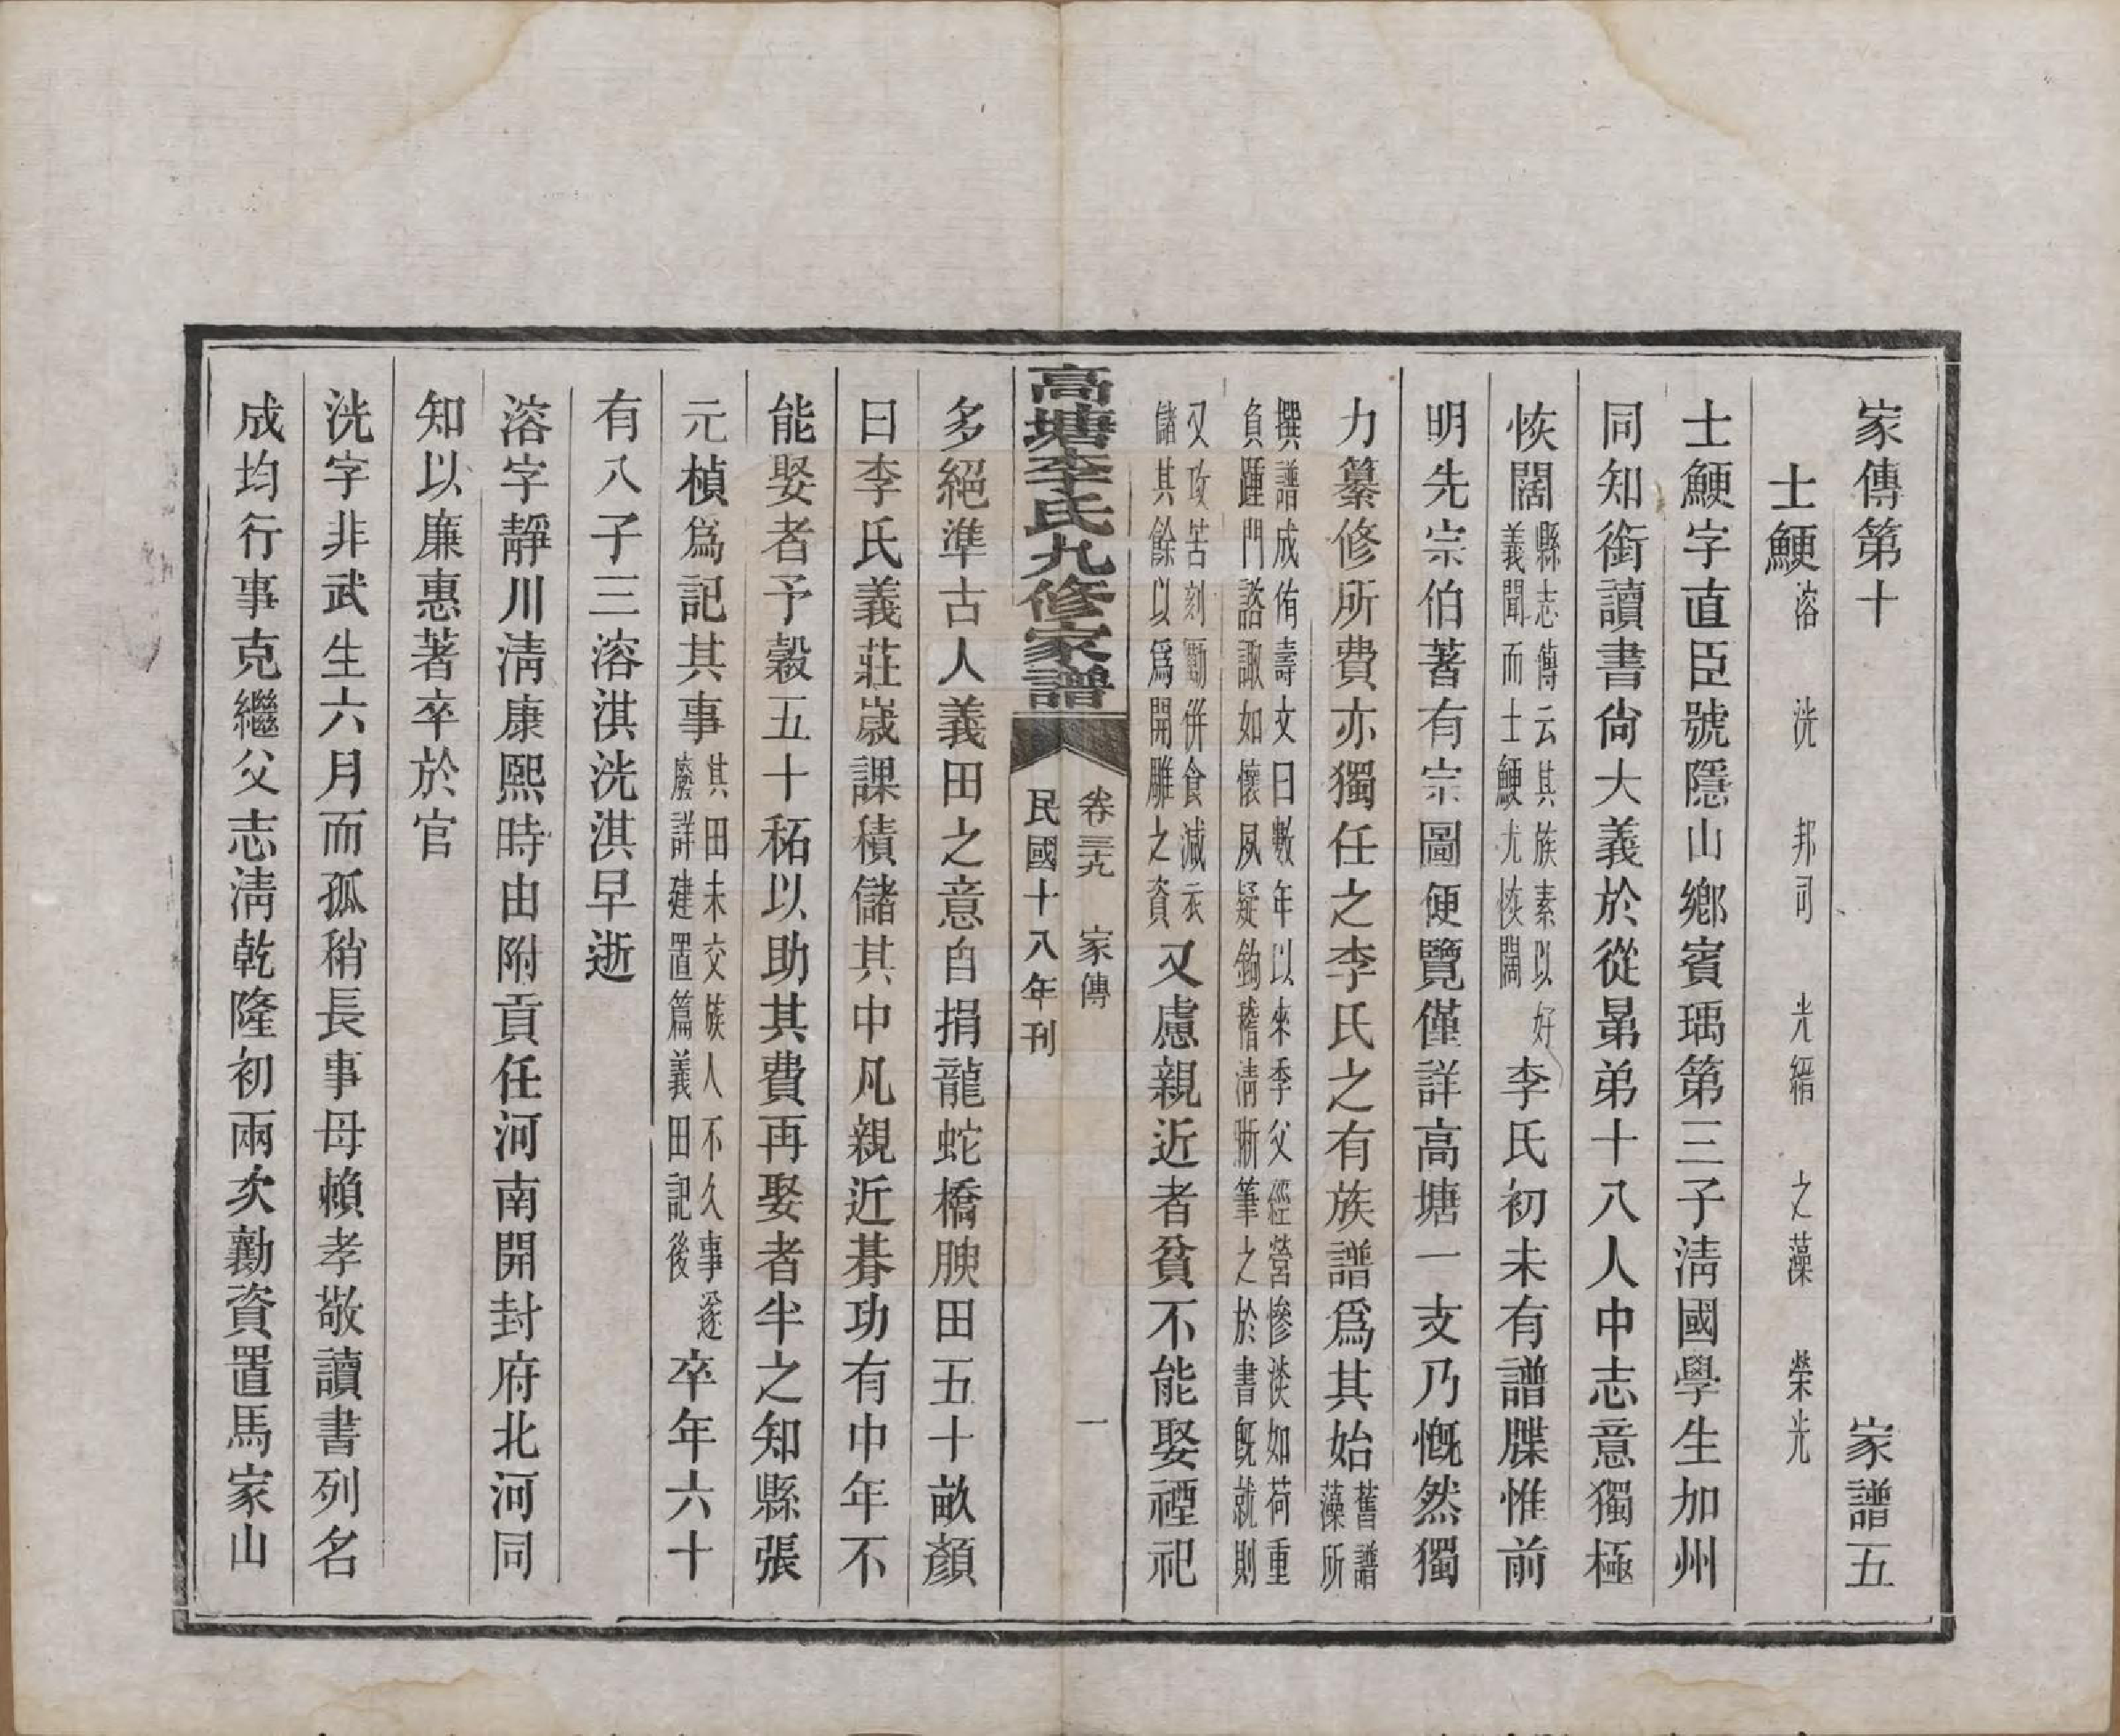 家傳第十　家譜五
士鯁　溶　洸　邦司　光縉　之藻　榮光
士鯁字直臣號隱山鄉賓瑀第三子淸國學生加州
同知銜讀書尙大義於從㬅弟十八人中志意獨極
恢闊
縣志傳云其族素以好
義聞而士鯁尤恢闊
李氏初未有譜牒惟前
明先宗伯著有宗圖便覽僅詳高塘一支乃慨然獨
力纂修所費亦獨任之李氏之有族譜爲其始
舊譜
藻所
撰譜成侑壽文曰數年以來季父經營慘淡如荷重
負踵門諮諏如懷夙疑鉤稽淸晰筆之於書既就則
又攻苦刻勵併食減衣
儲其餘以爲開雕之資
又慮親近者貧不能娶禋祀
高塘李氏九修家譜　卷三九　家傳　一
民國十八年刊
多絕準古人義田之意自捐龍蛇橋腴田五十畝顏
曰李氏義莊歲課積儲其中凡親近朞功有中年不
能娶者予穀五十秳以助其費再娶者半之知縣張
元楨爲記其事
其田未交族人不久事遂
廢詳建置篇義田記後
卒年六十
有八子三溶淇洸淇早逝
溶字靜川淸康熙時由附貢任河南開封府北河同
知以廉惠著卒於官
洸字非武生六月而孤稍長事母賴孝敬讀書列名
成均行事克繼父志淸乾隆初兩次勷資置馬家山